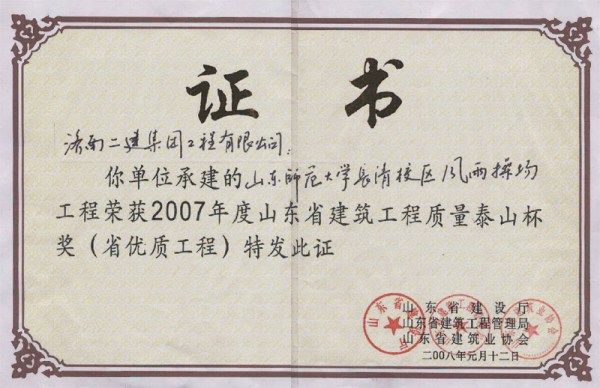 证 书
济南二建集团工程有限公司:
你单位承建的山东师范大学长清校区风雨操场
工程荣获2007年度山东省建筑工程质量泰山杯
奖（省优质工程）特发此证
山东省建设厅
山东省建筑工程管理局
山东省建筑业协会
二00八年元月十二日